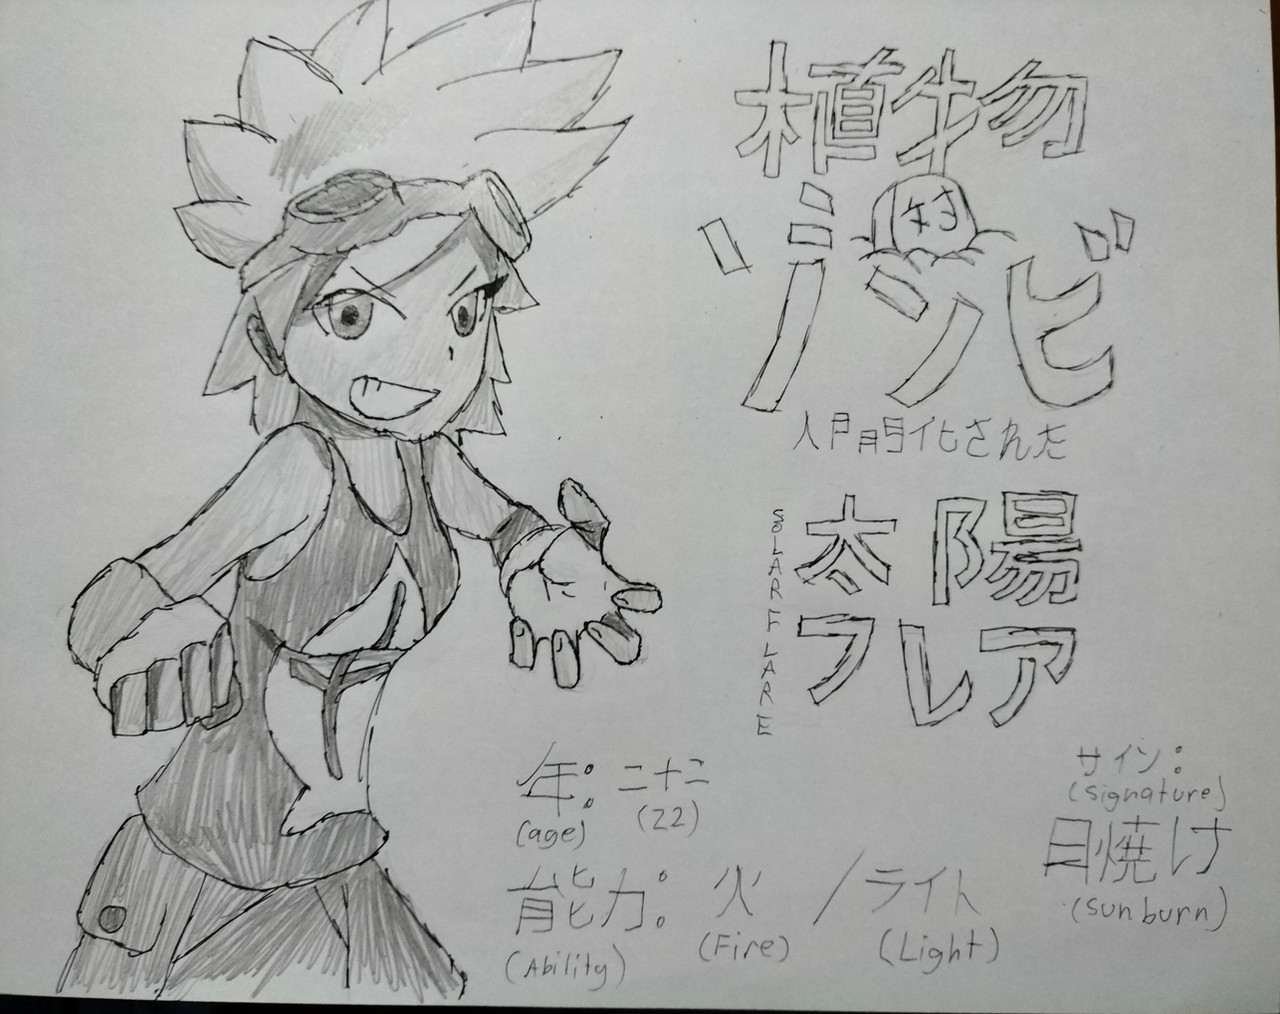 植物
対
ゾンビ
人間化された
SOLAR FLARE
太陽
フレア
年: 二十二
(age) (22)
能力: 火 / ライト
(Ability) (Fire) (Light)
サイン:
(signature)
日焼け
(sunburn)